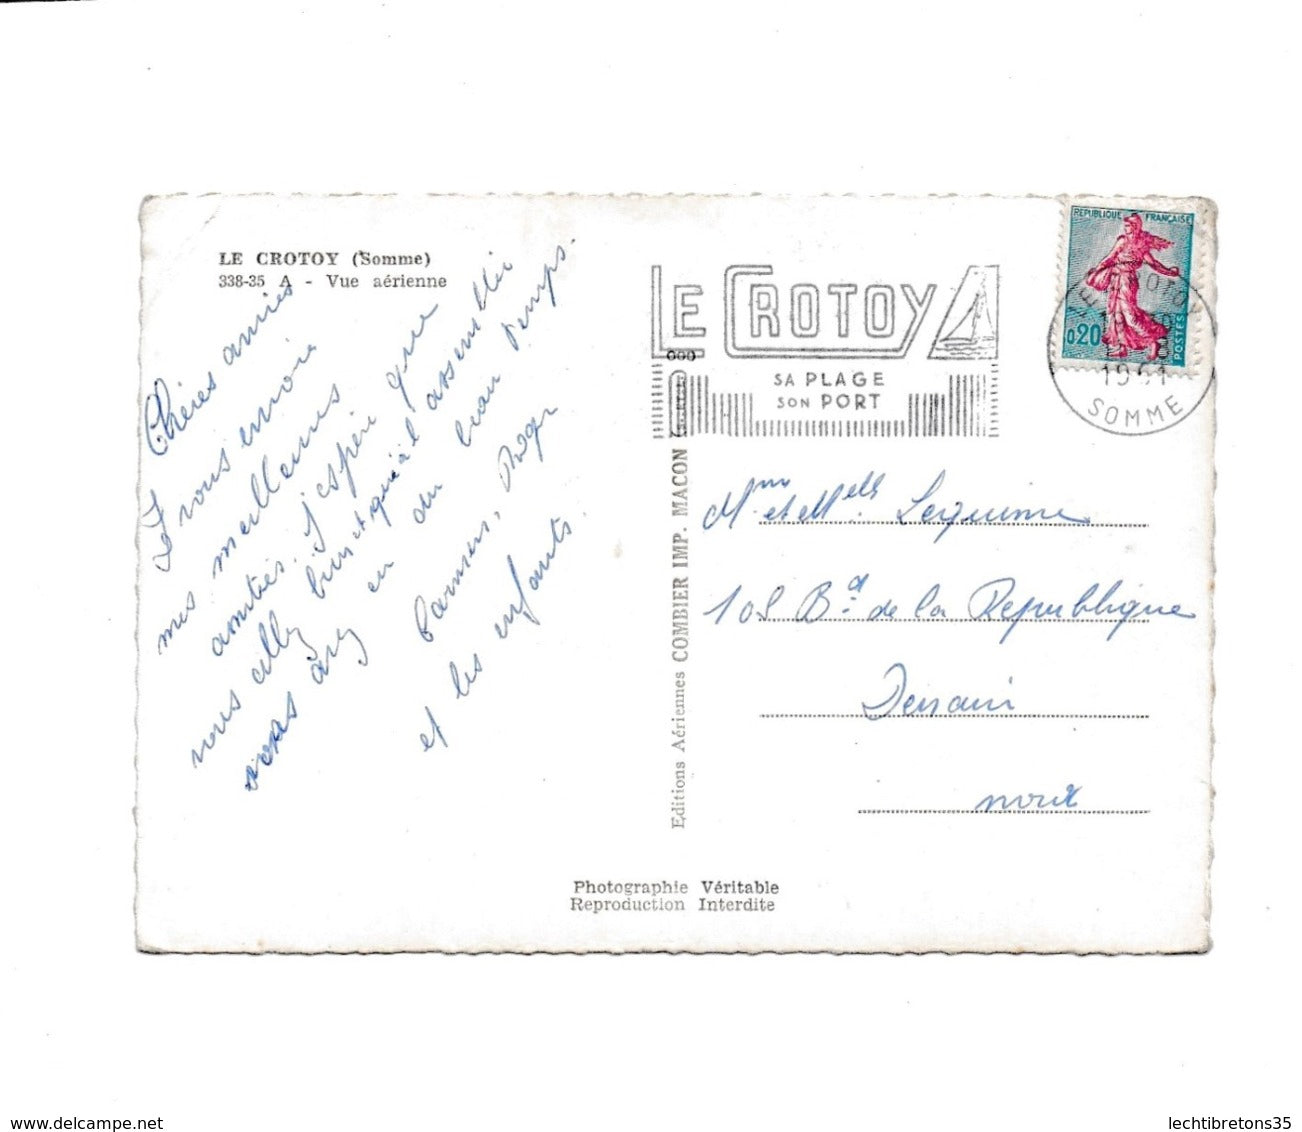 LE CROTOY (Somme)
338-35 A - Vue aérienne
Chères amies
Je vous envoie
mes meilleures
amitiés. j'espère que
vous allez bien et qu'à
vous avez en du beau temps.
et les enfants.
Roger
LE CROTOY
SA PLAGE
SON PORT
REPUBLIQUE FRANÇAISE
0,20
POSTES
LE CROTOY
1961
SOMME
Mme et Melle Lequime
108 Bd de la République
Denain
nord
Editions Aériennes COMBIER IMP. MACON
Photographie Véritable
Reproduction Interdite
lechtibretons35